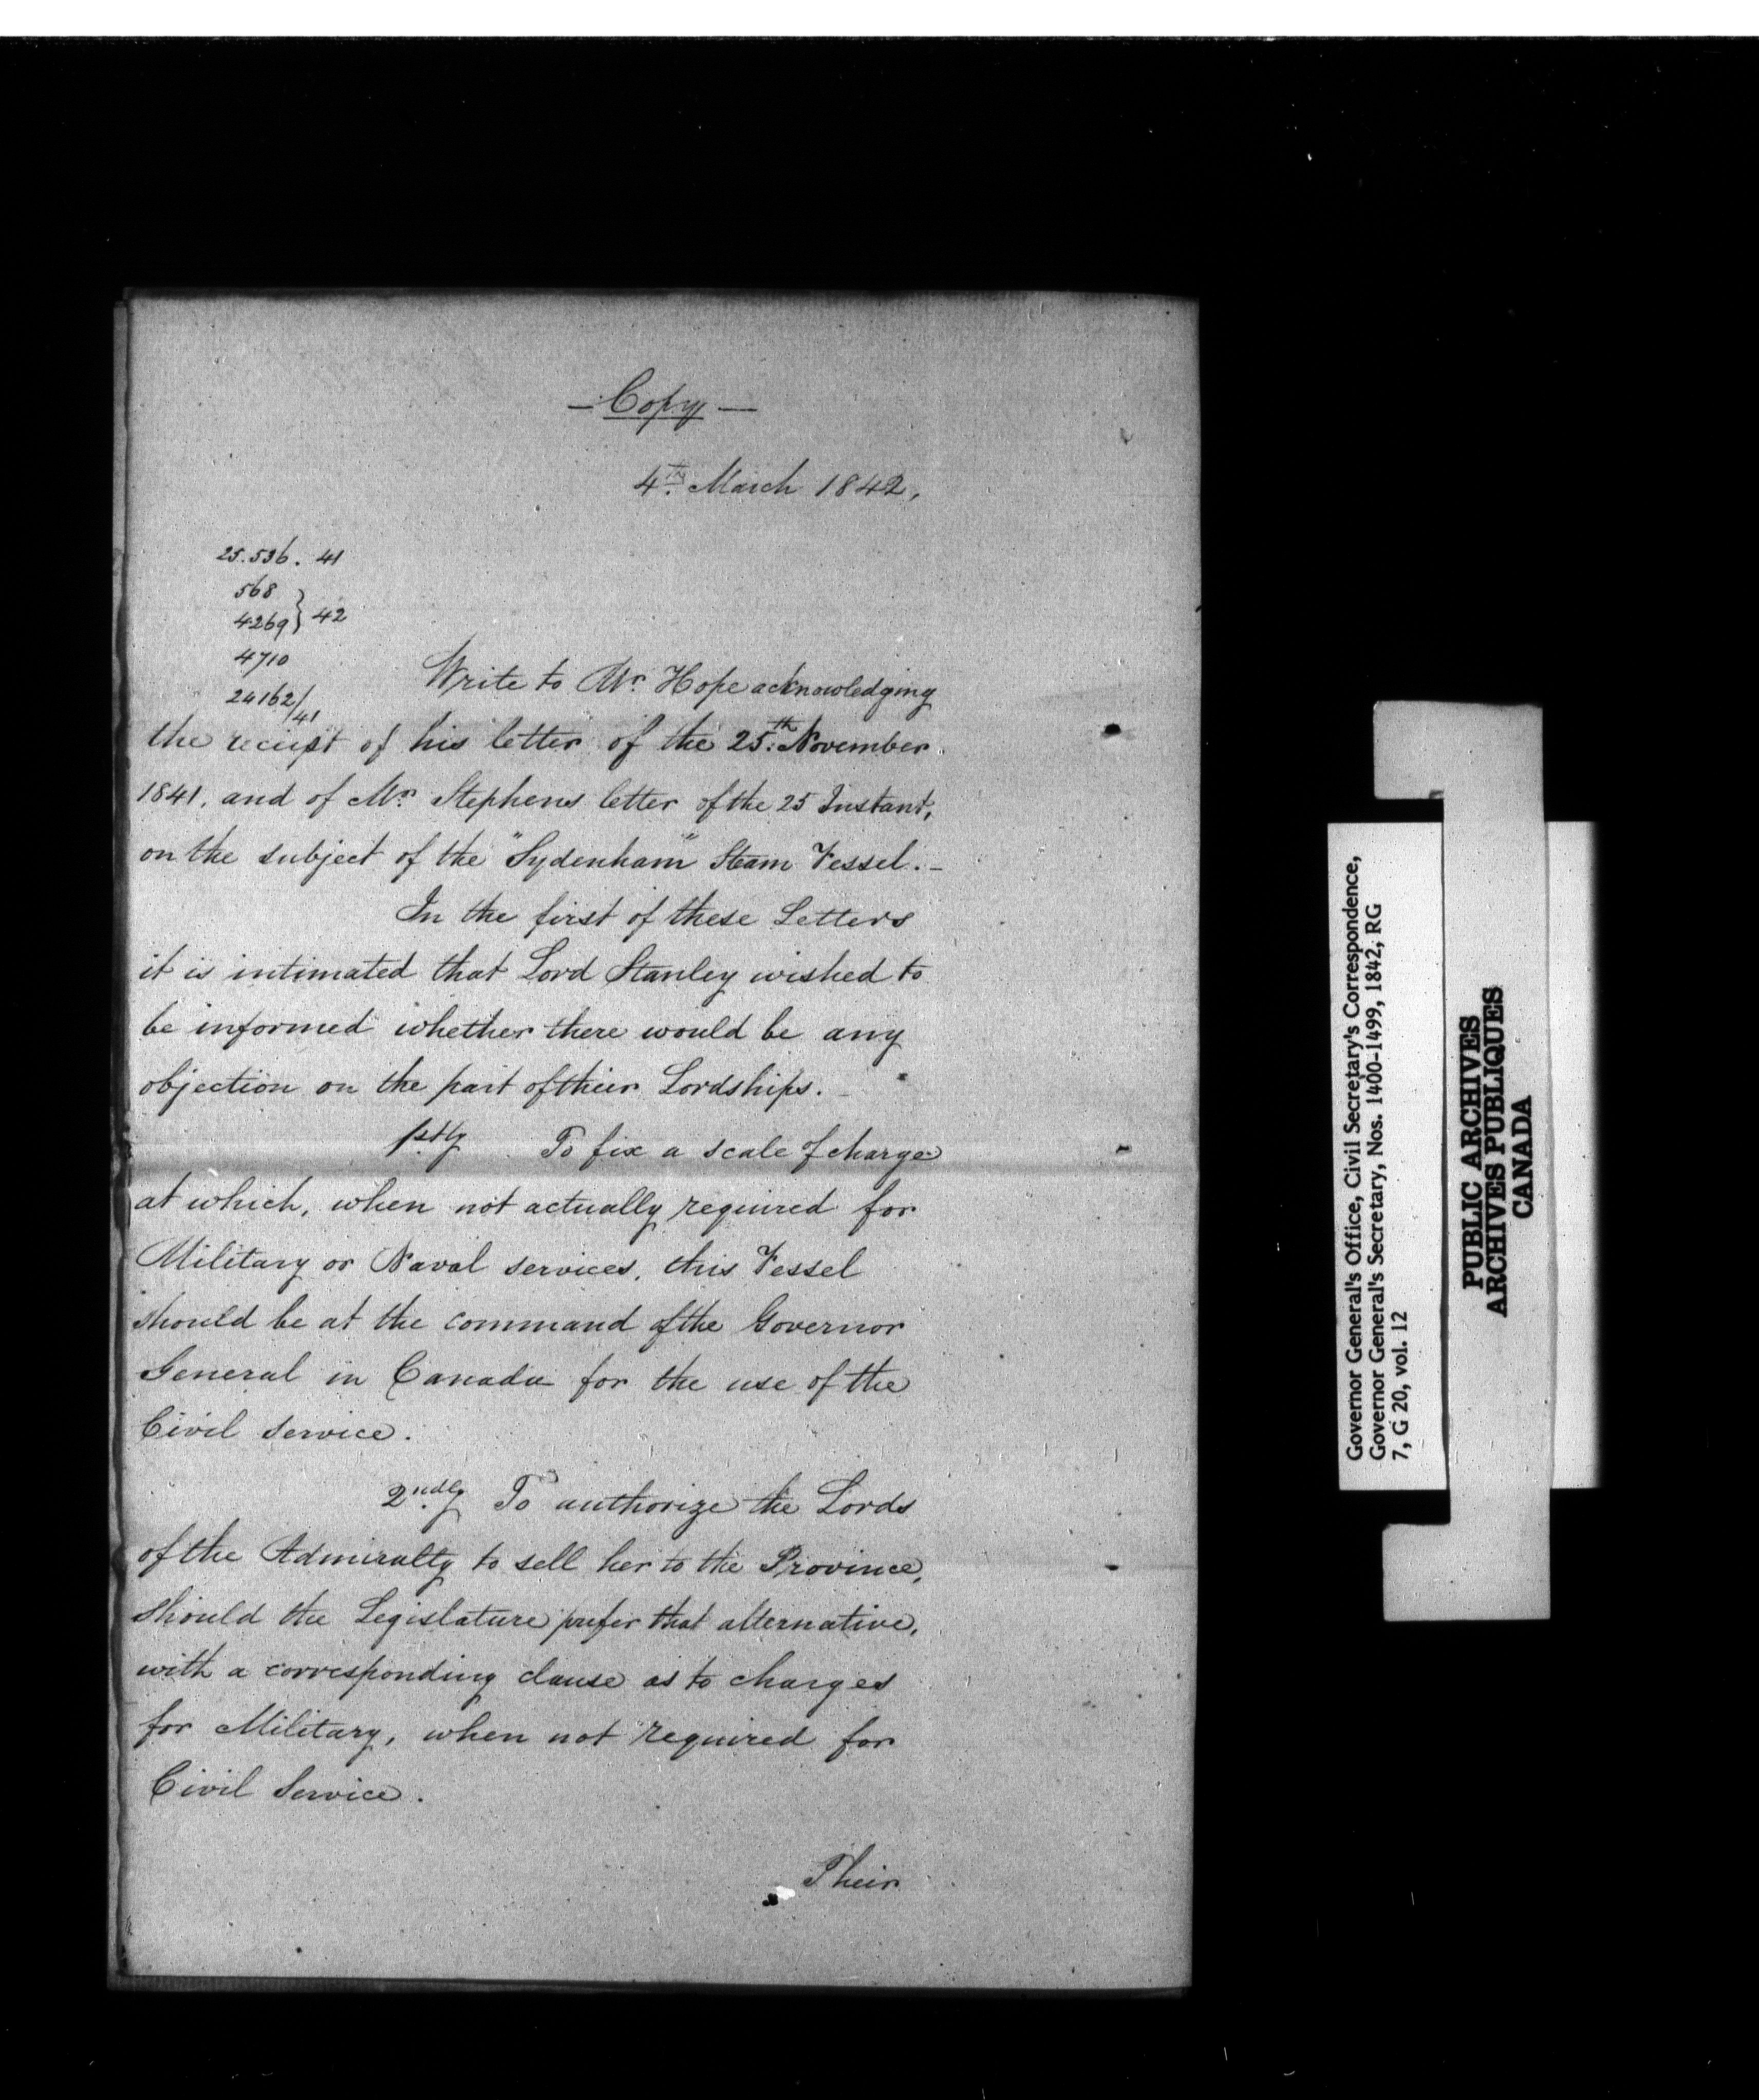 — Copy —
4th March 1842,
25.536. 41
568
4269 } 42
4710
24162/41
Write to Mr Hope acknowledging
the reciept of his letter of the 25th November
1841, and of Mr Stephens letter of the 25 Instant,
on the subject of the "Sydenham" Steam Vessel.–
In the first of these Letters
it is intimated that Lord Stanley wished to
be informed whether there would be any
objection on the part of their Lordships.
1stly To fix a scale of charge
at which, when not actually required for
Military or Naval services, this Vessel
should be at the command of the Governor
General in Canada for the use of the
Civil Service.
2ndly To authorize the Lords
of the Admiralty to sell her to the Province,
should the Legislature prefer that alternative,
with a corresponding clause as to charges
for Military, when not required for
Civil Service.
Their
Governor General's Office, Civil Secretary's Correspondence,
Governor General's Secretary, Nos. 1400-1499, 1842, RG
7, G 20, vol. 12
PUBLIC ARCHIVES
ARCHIVES PUBLIQUES
CANADA